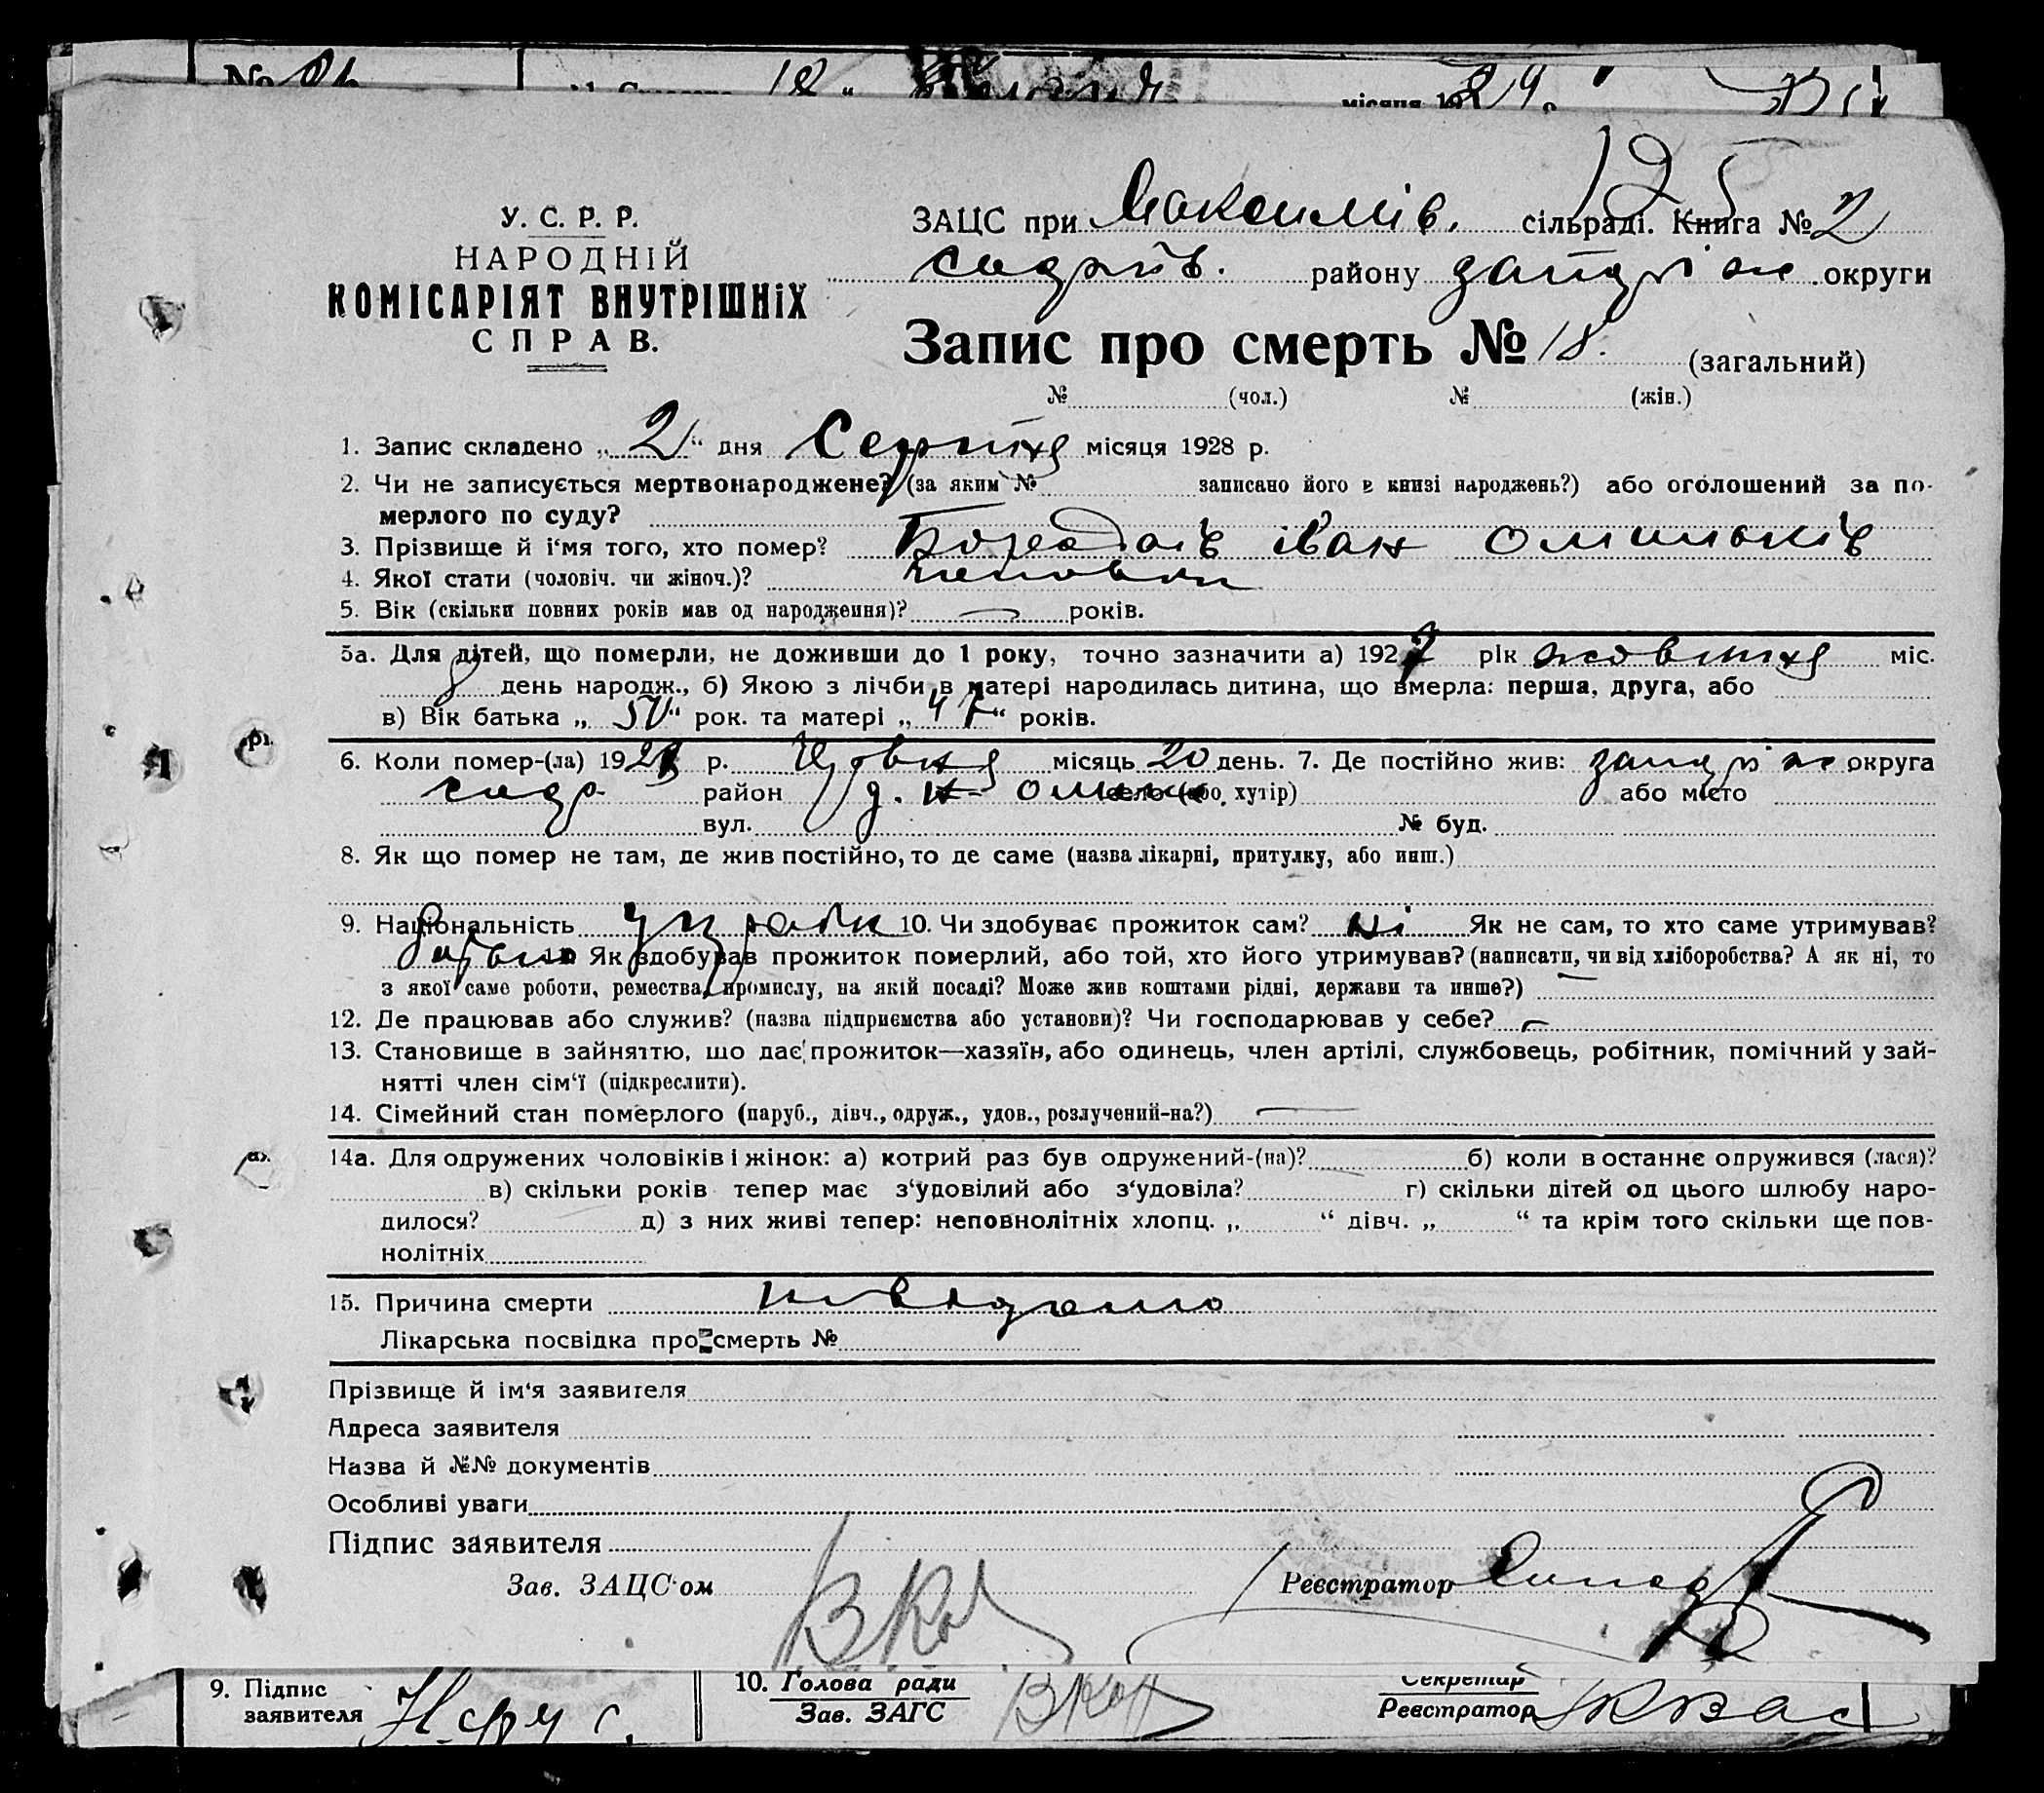 №
12 "
місяця 192 9 р
125
У. С. Р. Р.
НАРОДНІЙ
КОМІСАРІЯТ ВНУТРІШНІХ
СПРАВ.
ЗАЦС при Максимів. сільраді. Книга № 2
району Запоріж округи
Запис про смерть № 18. (загальний)
№ (чол.) № (жін.)
1. Запис складено „ 2 “ дня Серпня місяця 1928 р.
2. Чи не записується мертвонароджене? (за яким № записано його в книзі народжень?) або оголошений за по-
мерлого по суду?
3. Прізвище й і‘мя того, хто помер? Іван
4. Якої стати (чоловіч. чи жіноч.)? чоловічи
5. Вік (скільки повних років мав од народження)? — років.
5а. Для дітей, що померли, не доживши до 1 року, точно зазначити а) 1927 рік жовтня міс.
день народж., б) Якою з лічби в матері народилась дитина, що вмерла: перша, друга, або
в) Вік батька „ 50 “ рок. та матері „ 47 “ років.
6. Коли помер-(ла) 1928 р. Червня місяць 20 день. 7. Де постійно жив: Запоріж округа
район село (або хутір) або місто
вул. № буд.
8. Як що помер не там, де жив постійно, то де саме (назва лікарні, притулку, або инш.)
9. Національність 10. Чи здобуває прожиток сам? ні Як не сам, то хто саме утримував?
батько 11. Як здобував прожиток померлий, або той, хто його утримував? (написати, чи від хліборобства? А як ні, то
з якої саме роботи, ремества, промислу, на якій посаді? Може жив коштами рідні, держави та инше?) —
12. Де працював або служив? (назва підприємства або установи)? Чи господарював у себе? —
13. Становище в зайняттю, що дає прожиток—хазяїн, або одинець, член артілі, службовець, робітник, помічний у зай-
нятті член сім‘ї (підкреслити).
14. Сімейний стан померлого (паруб., дівч., одруж., удов., розлучений-на?) —
14а. Для одружених чоловіків і жінок: а) котрий раз був одружений-(на)? б) коли в останнє одружився (лася)?
в) скільки років тепер має з‘удовілий або з‘удовіла? г) скільки дітей од цього шлюбу наро-
дилося? д) з них живі тепер: неповнолітніх хлопц. „ “ дівч. „ “ та крім того скільки ще пов-
нолітніх
15. Причина смерти невідомо
Лікарська посвідка про смерть №
Прізвище й ім‘я заявителя
Адреса заявителя
Назва й №№ документів
Особливі уваги
Підпис заявителя
Зав. ЗАЦС‘ом Реєстратор
9. Підпис
заявителя
10. Голова ради
Зав. ЗАГС
Секретар
Реєстратор